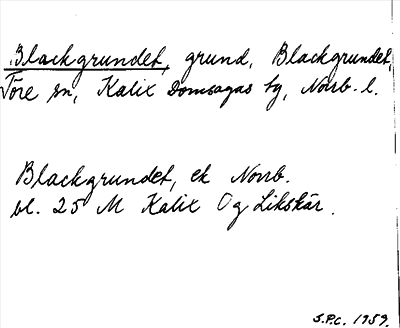 Blackgrundet, grund, Blackgrundet,
Töre sn, Kalix Domsagas tg, Norrb. l.
Blackgrundet, ek Norrb.
bl. 25 M Kalix Og Likskär.
S.P.C. 1959.